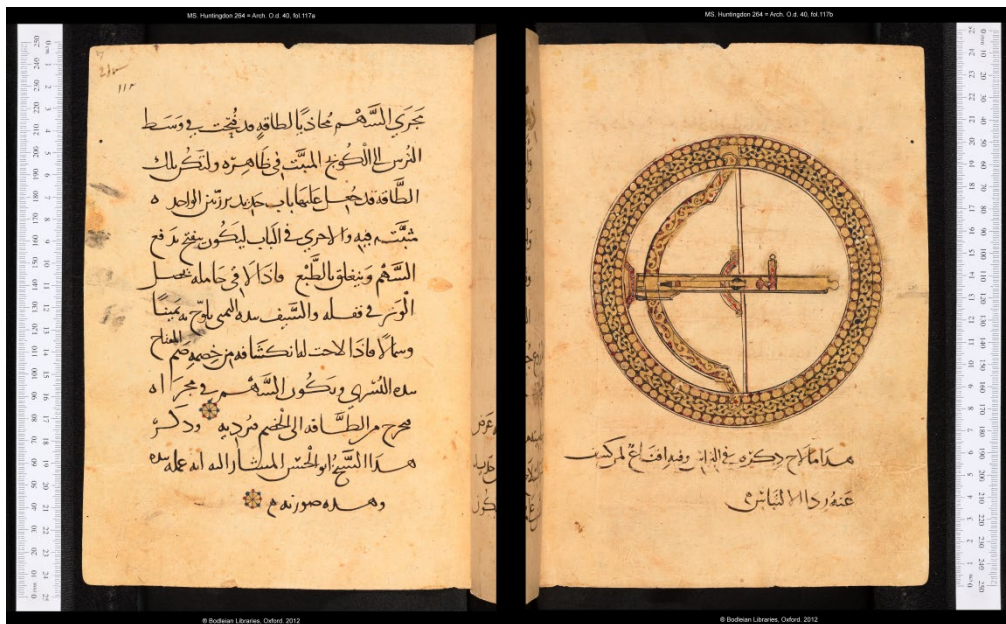 MS. Huntingdon 264 = Arch. O.d. 40, fol.117a
مَجرَى السَّهْم محاذيًا لطاقةٍ قد فُتحت في وَسَط
الترس الى الكونج المبيّت في ظاهره ولتكن تلك
الطَّاقة قد جُعل عليها باب حديد برزّتين الواحده
مثبّته فيه والاخرى في الباب ليكون يفتح بدفع
السَّهْم وينغلق بالطَّبْع فاذا لاقى حامله يجعل
الوتر في قفله والسَّيف بيده اليمنى يلوّح به يمينًا
وشمالا فاذا لاحت له انكشافه من خصمه ضم المفتاح
بيده اليُسْرى ويكون السَّهْم في مجراه
يخرج من الطَّاقه الى الخصم فيرديه وذكر
هذا الشَّيخ ابو الحسن المشار اليه انه عمله بيده
وهذه صورته
MS. Huntingdon 264 = Arch. O.d. 40, fol.117b
هذا ما لاح ذكره في التراس وفيه اقناعٌ لمن كشف
عنه ردا الالتباس
© Bodleian Libraries, Oxford. 2012
© Bodleian Libraries, Oxford. 2012